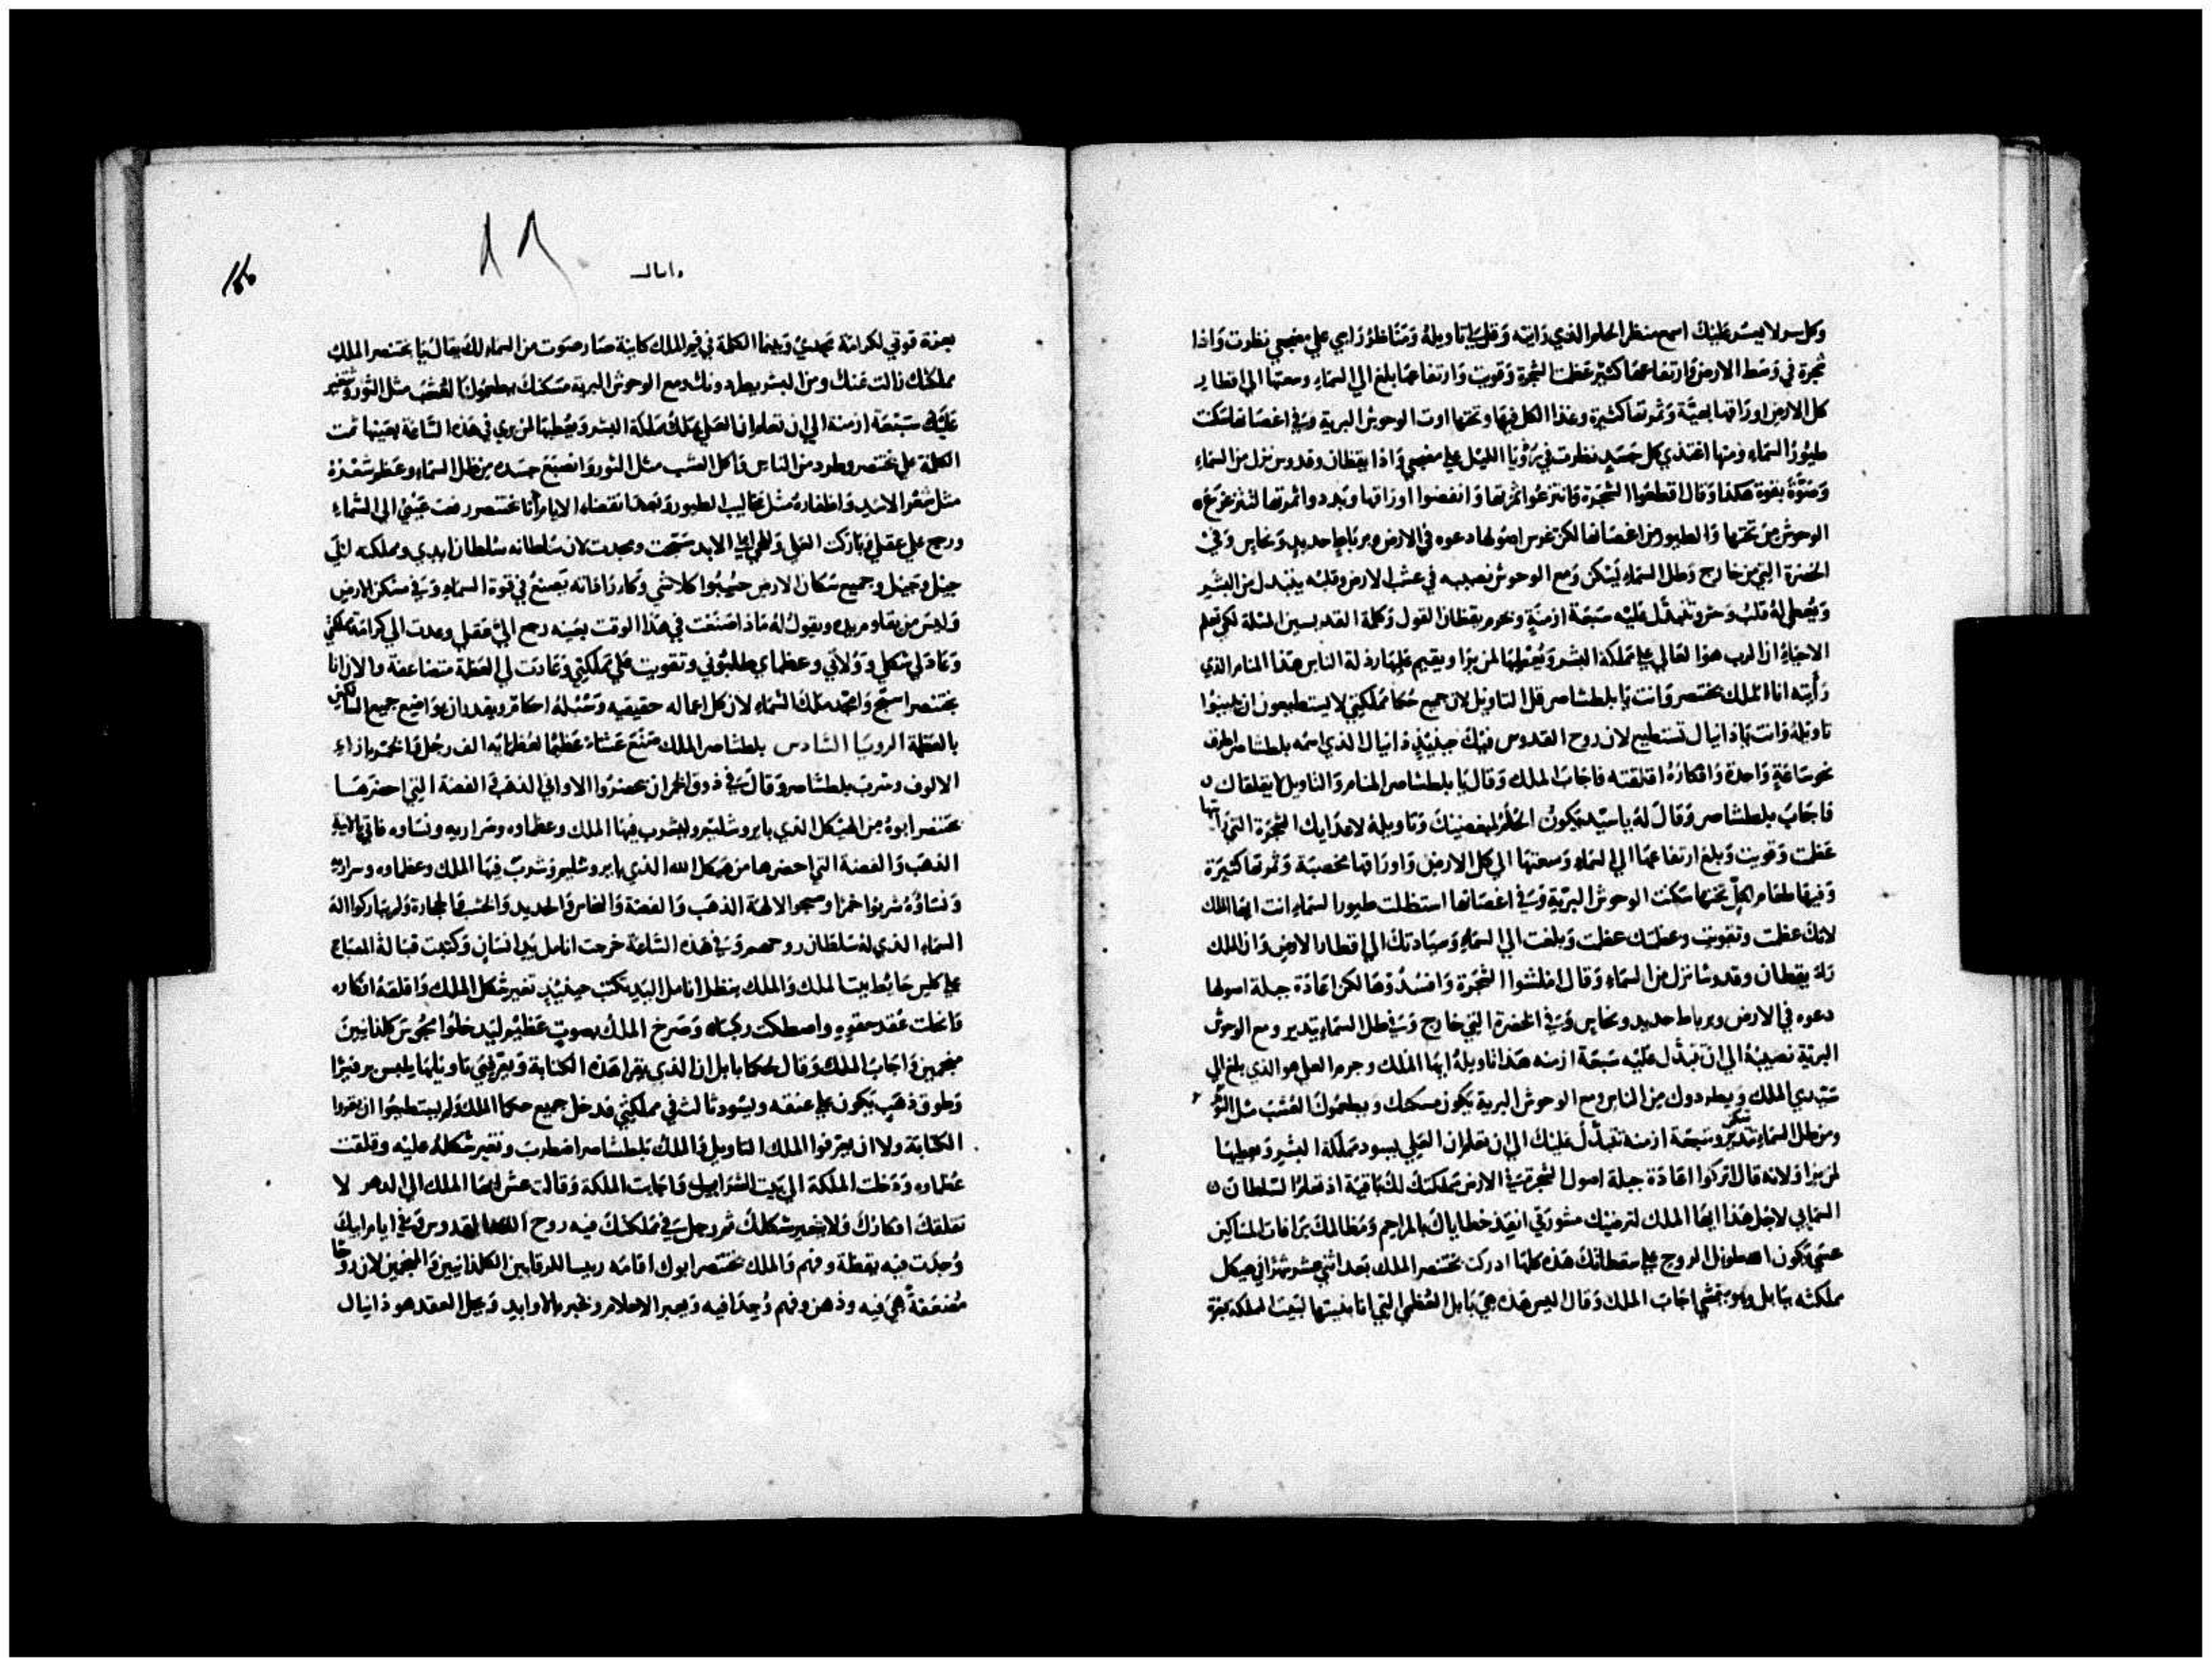 وكل سر لا يعسر عليك اسمع منظر الحلم الذي رايته وقل لي تاويله ومناظر راسي علي مضجعي نظرت واذا
شجرة في وسط الارض وارتفاعها كثير عظمت الشجرة وقويت وارتفاعها بلغ الي السماء وسعتها الي اقطار
كل الارض اوراقها بهية وثمرتها كثيرة وغذا الكل فيها وتحتها اوت الوحوش البرية وفي اغصانها سكنت
طيور السماء ومنها اغتذي كل جسد نظرت في رويا الليل علي مضجعي واذا يقظان وقدوس نزل من السماء
وصوت بقوة هكذا وقال اقطعوا الشجرة وانتزعوا اغصانها وانفضوا اوراقها وبددوا ثمرتها لتتزعزع
الوحوش من تحتها والطيور من اغصانها لكن غرس اصولها دعوه في الارض وبرباط حديد ونحاس وفي
الخضرة التي من خارج وطل السماء يسكن ومع الوحوش نصيبه في عشب الارض وقلبه يتبدل من البشر
ويعطي له قلب وحش وتتبدل عليه سبعة ازمنة وخبر يقظان القول وكلمة القديسين المسلة لكي تعلم
الاحياء ان الرب هو العالي علي مملكة البشر ويعطيها لمن يرا ويقيم عليها رذلة الناس هذا المنام الذي
رايته انا الملك بختنصر وانت يا بلطشاصر قل التاويل لان جميع حكما مملكتي لا يستطيعون ان يبينوا
تاويله وانت يا دانيال تستطيع لان روح القدوس فيك حينئذ دانيال الذي اسمه بلطشاصر اطرق
نحو ساعة واحدة وافكاره اقلقته فاجاب الملك وقال يا بلطشاصر المنام والتاويل لا يقلقاك
فاجاب بلطشاصر وقال له يا سيد يكون الحلم لمبغضيك وتاويله لاعدايك الشجرة التي رايتها
عظمت وقويت وبلغ ارتفاعها الي السماء وسعتها الي كل الارض واوراقها مخصبة وثمرتها كثيرة
وفيها طعام لكل تحتها سكنت الوحوش البرية وفي اغصانها استظلت طيور السماء انت ايها الملك
لانك عظمت وتقويت وعظمتك عظمت وبلغت الي السماء وسيادتك الي اقطار الارض وان الملك
راي يقظان وقدوسا نزل من السماء وقال امتشوا الشجرة وافسدوها لكن اعادة جبلة اصولها
دعوه في الارض وبرباط حديد ونحاس وفي الخضرة التي خارج وفي طل السماء يتدبر ومع الوحوش
البرية نصيبه الي ان تتبدل عليه سبعة ازمنه هذا تاويله ايها الملك وحرم العلي هو الذي بلغ الي
سيدي الملك ويطردوك من الناس ومع الوحوش البرية يكون مسكنك ويطعمونك العشب مثل الثور
ومن طل السماء تدبر وسبعة ازمنة تتبدل عليك الي ان تعلم ان العلي يسود مملكة البشر ويعطيها
لمن يرا ولانه قال اتركوا اعادة جبلة اصول الشجرة في الارض مملكتك لك باقية اذ تعلم السلطان
السمايي لاجل هذا ايها الملك لترضيك مشورتي انقذ خطاياك بالمراحم ومظالمك برافات المساكين
عسي يكون الطويل الروح علي سقطاتك هذه كلها ادركت بختنصر الملك بعد اثني عشر شهرا في هيكل
مملكته ببابل وهو يتمشي اجاب الملك وقال اليس هذه هي بابل العظمي التي انا بنيتها لبيت المملكة بعزة
دانيال
بعزة قوتي لكرامة مجدي وبينما الكلمة في فم الملك كاينة صار صوت من السماء لك يقال يا بختنصر الملك
مملكتك زالت عنك ومن البشر يطردونك ومع الوحوش البرية مسكنك يطعمونك العشب مثل الثور وتتغير
عليك سبعة ازمنة الي ان تعلم ان العلي يملك مملكة البشر ويعطيها لمن يري في هذه الساعة بعينها تمت
الكلمة علي بختنصر وطرد من الناس واكل العشب مثل الثور وانصبغ جسده من طل السماء وعظم شعره
مثل شعر الاسد واظفاره مثل مخاليب الطيور وبعد انقضاء الايام انا بختنصر رفعت عيني الي السماء
ورجع علي عقلي وباركت العلي وللحي الي الابد سبحت ومجدت لان سلطانه سلطان ابدي ومملكته لتلي
جيل وجيل وجميع سكان الارض حسبوا كلا شي وكارادته يصنع في قوة السماء وفي مسكن الارض
وليس من يقاوم يده ويقول له ماذا صنعت في هذا الوقت بعينه رجع الي عقلي وعدت الي كرامة مملكتي
وعاد لي شكلي وولاتي وعظماي يطلبوني وتقويت علي مملكتي وعادت لي العظمة متضاعفة والان انا
بختنصر اسبح وامجد ملك السماء لان كل اعماله حقيقيه وسبله احكام ويقدر ان يواضع جميع السالكين
بالعظمة الرويا السادس بلطشاصر الملك صنع عشاء عظيما لعظمايه الف رجل والخمر بازاء
الالوف وشرب بلطشاصر وقال في ذوق الخمر ان يحضروا الاواني الذهب والفضة التي احضرها
بختنصر ابوه من الهيكل الذي بايروشليم وليشرب فيها الملك وعظماوه وسراريه ونساوه فاتي بالانية
الذهب والفضة التي احضرها من هيكل الله الذي بايروشليم وشرب فيها الملك وعظماوه وسراريه
ونساؤه شربوا خمرا وسبحوا الالهة الذهب والفضة والنحاس والحديد والخشب والحجارة ولم يباركوا اله
السماء الذي له سلطان روحهم وفي هذه الساعة خرجت انامل يد انسان وكتبت قبالة المصباح
علي كلس حايط بيت الملك والملك ينظر انامل اليد يكتب حينئذ تغير شكل الملك واقلقه افكاره
وانحلت عقد حقويه واصطكت ركبتاه وصرخ الملك بصوت عظيم ليدخلوا مجوس كلدانيين
منجمين واجاب الملك وقال لحكما بابل ان الذي يقرا هذه الكتابة ويعرفني تاويلها يلبس برفيرا
وطوق ذهب يكون علي عنقه ويسود ثالث في مملكتي فدخل جميع حكما الملك ولم يستطيعوا ان يقروا
الكتابة ولا ان يعرفوا الملك التاويل والملك بلطشاصر اضطرب وتغير شكله عليه وقلقت
عظماوه ودخلت الملكة الي بيت الشراب واجابت الملكة وقالت عش ايها الملك الي الدهر لا
تقلقك افكارك ولا يتغير شكلك ثم رجل في مملكتك فيه روح الله القدوس وفي ايام ابيك
وجدت فيه يقظة وفهم والملك بختنصر ابوك اقامه رييسا للرقايين الكلدانيين والمنجمين لان روحا
مضعفة هي فيه وذهن وفهم وجدا فيه ويعبر الاحلام ويخبر بالاوابد ويحل العقد هو دانيال